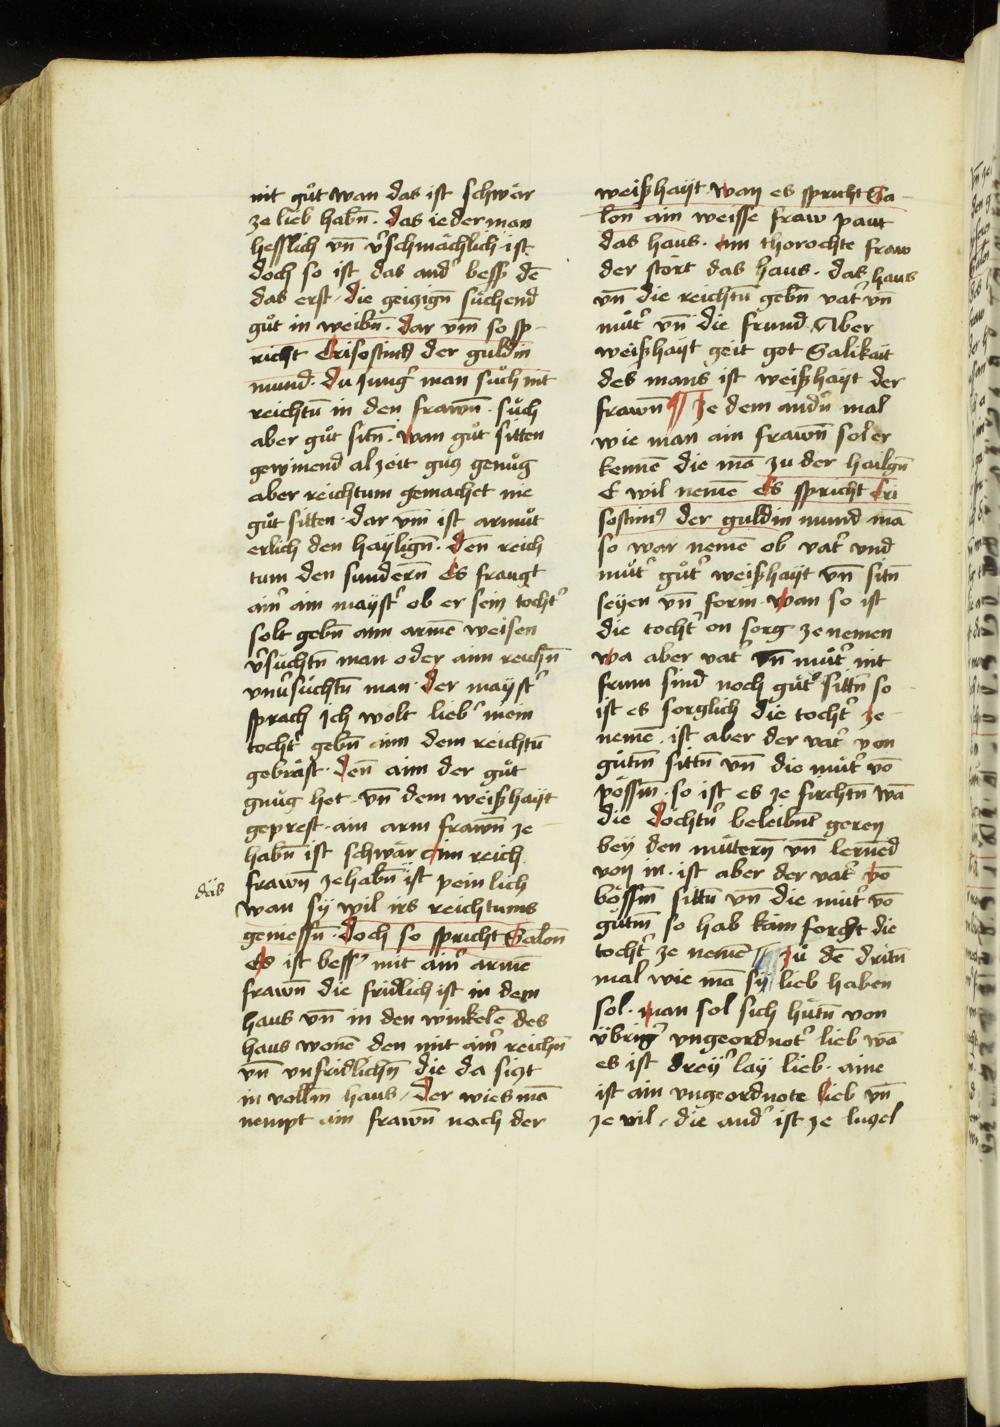 nit gůt wan das ist schwär
ze lieb habn̄. das ieder man
hesslich vn̄ v̓schmächlich ist
doch so ist das and̓ bess̓ dē
das erst / die geizign̄ süchend
gůt in weibn̄. dar vm̄ so sp-
richt Crisostim9 der guldin
mund. du Jung̓ man sůch nit
reichtū in den frawn̄. sůch
aber gůt sitn̄. wan gůt sitten
gewinend alzeit gutz genůg
aber reichtum gemachet nie
gůt sitten. dar vm̄ ist armůt
erlich den haylign̄. den̄ reich
tum den sundern̄ Es fraugt
ain̓ ain mayst̓ ob er sein tocht̓
solt gebn̄ aim armē weisen
v̓süchtn̄ man oder aim reichn̄
vnv̓süchtn̄ man. der mayst̓
sprach Ich wölt lieb̓ mein
tocht̓ gebn̄ aim dem reichtū
gebräst. den̄ aim der gůt
gnůg het. vn̄ dem weißhayt
geprest. ain arm frawn̄ ze
habn̄ ist schwär ain reich
frawn̄ ze habn̄ ist pein lich
das
wan sy wil irs reichtums
geniessn̄. doch so spricht Salon̄
Es ist bess̓ mit ain̓ armē
frawn̄ die fridlich ist in dem
haus vn̄ in den winkelē des
haus wonē den mit ain̓ reichn̄
vn̄ vnfridlichn̄ die da sizt
in vollm̄ haus / der wies mā
nempt ain frawn̄ nach der
weißhayt. wan es spricht Sa-
lon̄ ain weisse fraw paut
das haus. ain thorochte fraw
der stört das haus. das haus
vn̄ die reichtū gebn̄ vat̓ vn̄
můt̓ vn̄ die frund. Aber
weißhayt geit got Salikait
des mans ist weißhayt der
frawn̄ ¶ Ze dem andn̓ mal
wie man ain frawn̄ sol er
kennē die mā zu der hailgn̄
E wil nemē Es spricht Cri
sostim9 der guldin mund mā
so war nemē ob vat̓ vnd
můt̓ gůt̓ weißhayt vn̄ sitn̄
seyen vn̄ form. wan so ist
die tocht̓ on sorg ze nemen
wa aber vat̓ vn̄ můt̓ nit
frum sind noch gůt̓ sittn̄ so
ist es sorglich die tocht̓ ze
nemē. ist aber der vat̓ von
gůtm̄ sittn̄ vn̄ die můt̓ vō
pössm̄. so ist es ze firchtn̄ wā
die dochtn̓ beleibnt geren
bey den můtern̄ vn̄ lernēd
von in. ist aber der vat̓ vō
bössm̄ sittn̄ vn̄ die můt̓ vō
gůtm̄ so hab kain forcht die
tocht̓ ze nemē ¶ Zů dē dritn̄
mal wie mā sy lieb haben
sol. man sol sich hütn̄ von
übrig̓ vngeordnot̓ lieb wā
es ist drey̓ lay lieb. aine
ist ain vngeordnote lieb vn̄
ze vil / die and̓ ist ze luzel